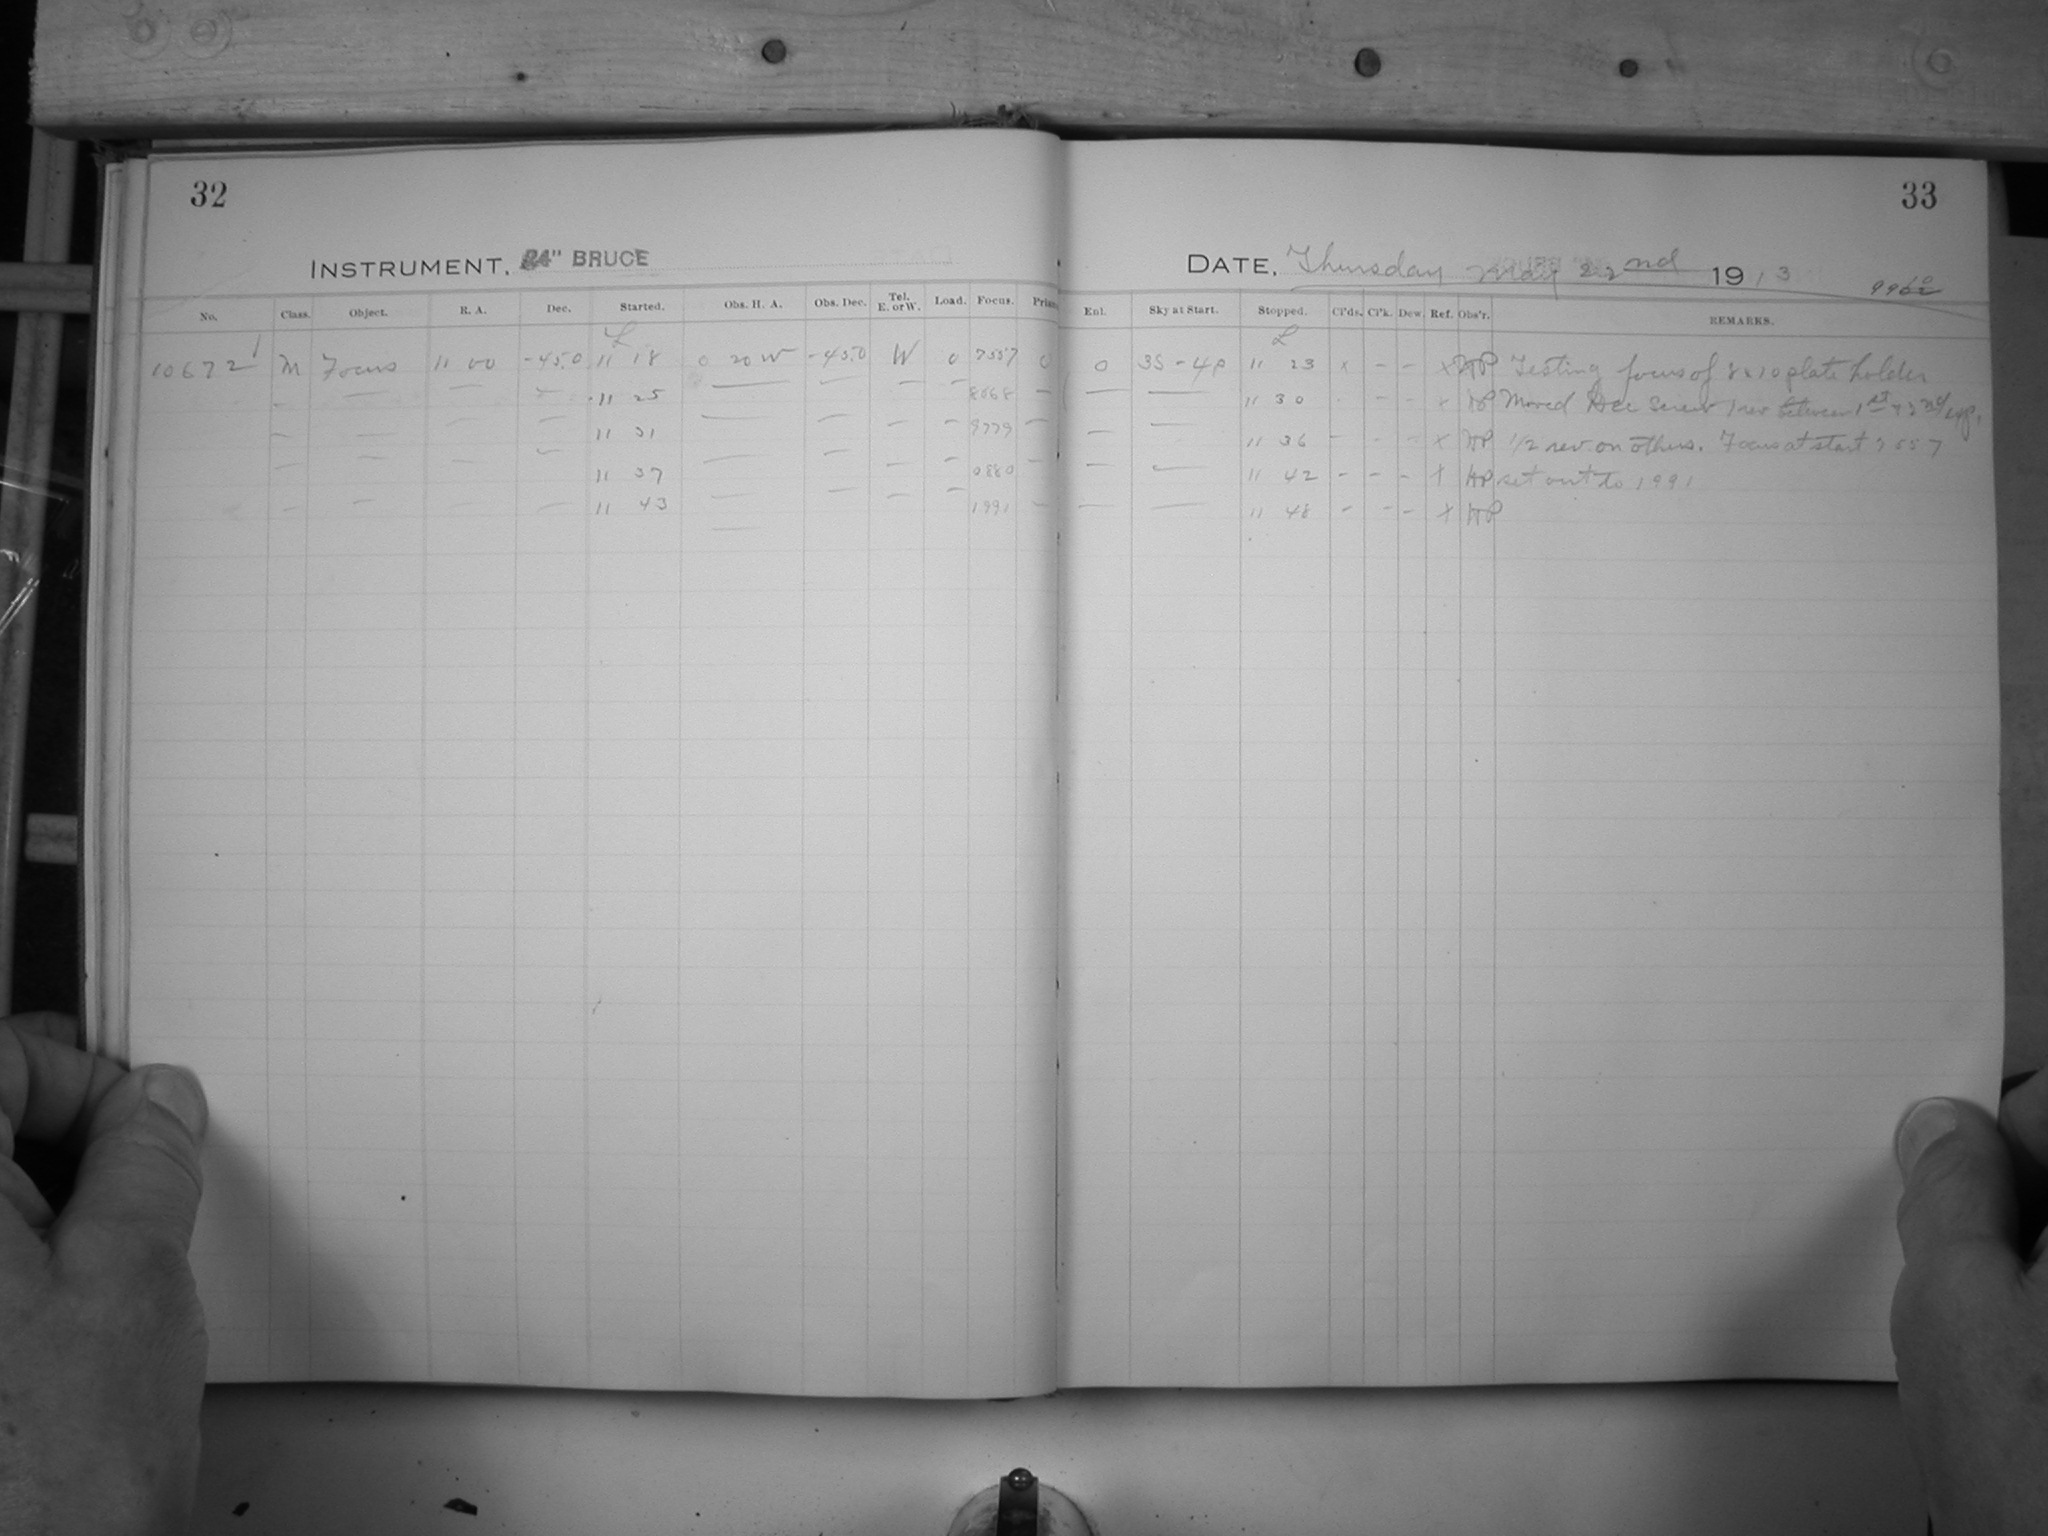 32
33
INSTRUMENT, 24" BRUCE
DATE, Thursday May 22nd 1913
No. Class. Object. R. A. Dec. Started. Obs. H. A. Obs. Dec. Tel. E. or W. Load. Focus. Prism
Enl. Sky at Start. Stopped. Cl'ds. Cl'k. Dew. Ref. Obs'r. REMARKS.
L
L
10672 M Focus 11 00 -45.0 11 18 0 20 W -45.0 W 0 7557 0
0 3S-4P 11 23 x - - x HP Testing focus of 8x10 plate holder
- - - - 11 25 - - - - 8068 -
- - 11 30 - - x HP Moved Dec Screw 1 rev between 1st & 2nd exp.
- - - - 11 31 - - - - 9779 -
- - 11 36 - - - x HP 1/2 rev. on others. Focus at start 7557
- - - - 11 37 - - - - 0880 -
- - 11 42 - - - x HP set out to 1991
- - - 11 43 - - - - 1991 -
- - 11 48 - - - x HP